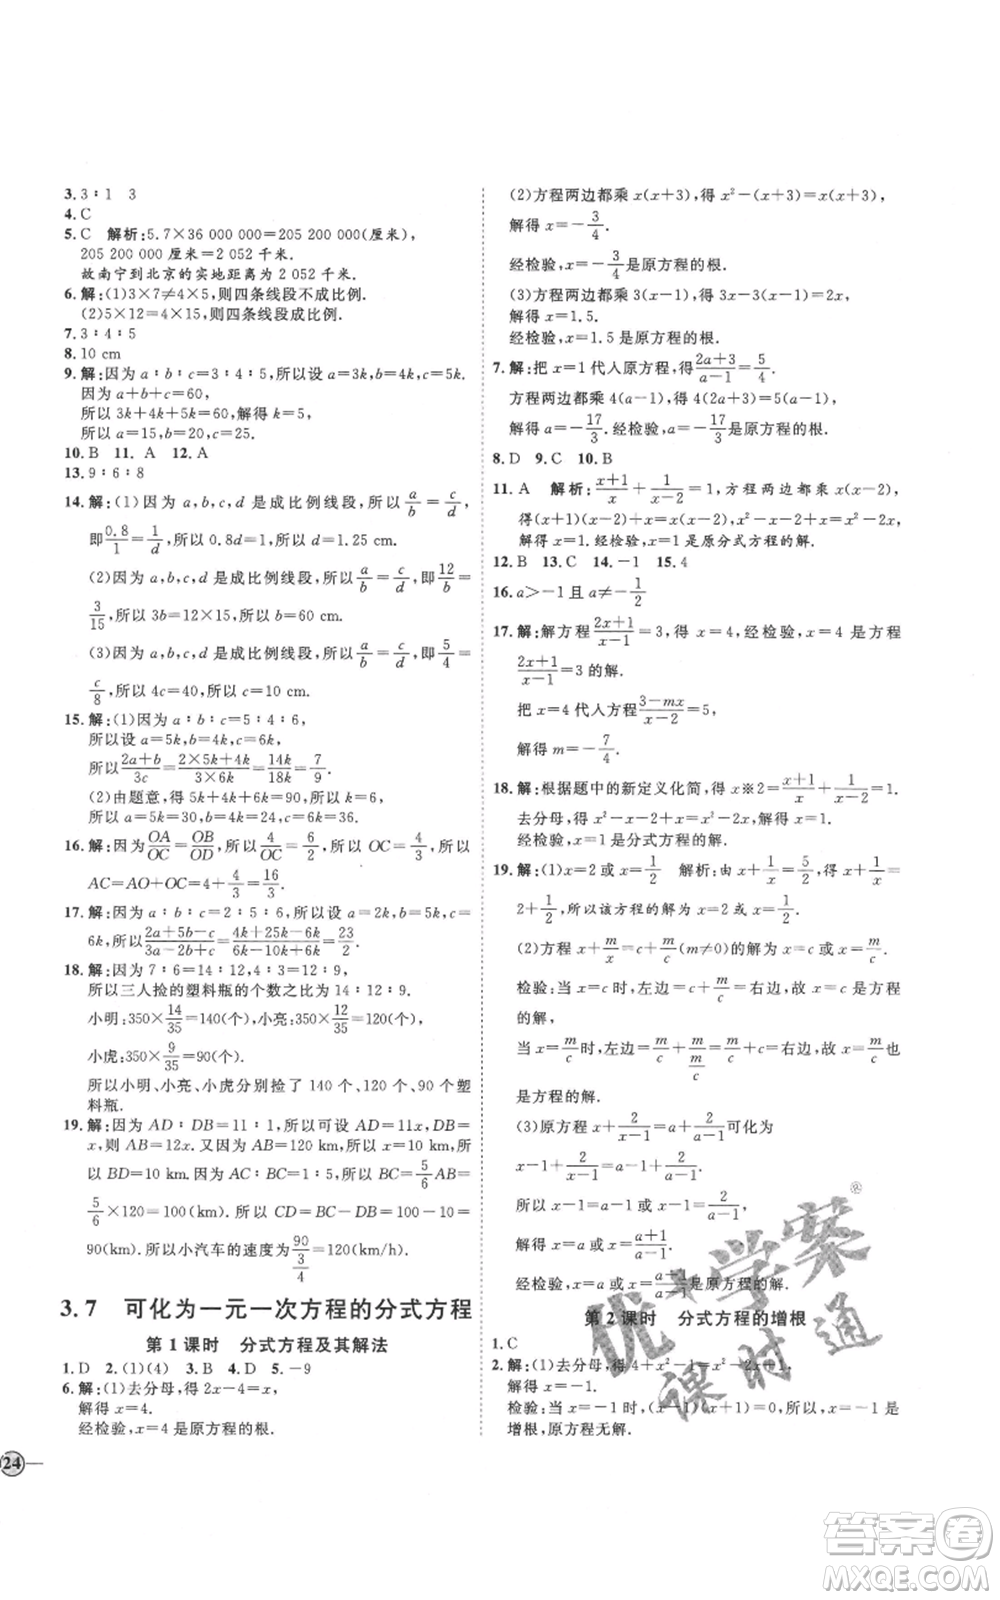 3. 3∶1 3
4. C
5. C 解析:5.7×36 000 000=205 200 000(厘米),
205 200 000 厘米=2 052 千米.
故南宁到北京的实地距离为 2 052 千米.
6. 解:(1)3×7≠4×5,则四条线段不成比例.
(2)5×12=4×15,则四条线段成比例.
7. 3∶4∶5
8. 10 cm
9. 解:因为 a∶b∶c=3∶4∶5,所以设 a=3k,b=4k,c=5k.
因为 a+b+c=60,
所以 3k+4k+5k=60,解得 k=5,
所以 a=15,b=20,c=25.
10. B 11. A 12. A
13. 9∶6∶8
14. 解:(1)因为 a,b,c,d 是成比例线段,所以 a/b=c/d,
即 0.8/1=1/d,所以 0.8d=1,所以 d=1.25 cm.
(2)因为 a,b,c,d 是成比例线段,所以 a/b=c/d,即 12/b=
3/15,所以 3b=12×15,所以 b=60 cm.
(3)因为 a,b,c,d 是成比例线段,所以 a/b=c/d,即 5/4=
c/8,所以 4c=40,所以 c=10 cm.
15. 解:(1)因为 a∶b∶c=5∶4∶6,
所以设 a=5k,b=4k,c=6k,
所以 (2a+b)/3c=(2×5k+4k)/(3×6k)=14k/18k=7/9.
(2)由题意,得 5k+4k+6k=90,所以 k=6,
所以 a=5k=30,b=4k=24,c=6k=36.
16. 解:因为 OA/OC=OB/OD,所以 4/OC=6/2,所以 OC=4/3,所以
AC=AO+OC=4+4/3=16/3.
17. 解:因为 a∶b∶c=2∶5∶6,所以设 a=2k,b=5k,c=
6k,所以 (2a+5b-c)/(3a-2b+c)=(4k+25k-6k)/(6k-10k+6k)=23/2.
18. 解:因为 7∶6=14∶12,4∶3=12∶9,
所以三人捡的塑料瓶的个数之比为 14∶12∶9.
小明:350×14/35=140(个),小亮:350×12/35=120(个),
小虎:350×9/35=90(个).
所以小明、小亮、小虎分别捡了 140 个、120 个、90 个塑
料瓶.
19. 解:因为 AD∶DB=11∶1,所以可设 AD=11x,DB=
x,则 AB=12x.又因为 AB=120 km,所以 x=10 km,所
以 BD=10 km.因为 AC∶BC=1∶5,所以 BC=5/6AB=
5/6×120=100(km).所以 CD=BC-DB=100-10=
90(km).所以小汽车的速度为 90/(3/4)=120(km/h).
3.7 可化为一元一次方程的分式方程
第 1 课时 分式方程及其解法
1. D 2. (1)(4) 3. B 4. D 5. -9
6. 解:(1)去分母,得 2x-4=x,
解得 x=4.
经检验,x=4 是原方程的根.
24
(2)方程两边都乘 x(x+3),得 x²-(x+3)=x(x+3),
解得 x=-3/4.
经检验,x=-3/4 是原方程的根.
(3)方程两边都乘 3(x-1),得 3x-3(x-1)=2x,
解得 x=1.5.
经检验,x=1.5 是原方程的根.
7. 解:把 x=1 代入原方程,得 (2a+3)/(a-1)=5/4.
方程两边都乘 4(a-1),得 4(2a+3)=5(a-1),
解得 a=-17/3.经检验,a=-17/3是原方程的根.
8. D 9. C 10. B
11. A 解析:(x+1)/x+1/(x-2)=1,方程两边都乘 x(x-2),
得(x+1)(x-2)+x=x(x-2),x²-x-2+x=x²-2x,
解得 x=1.经检验,x=1 是原分式方程的解.
12. B 13. C 14. -1 15. 4
16. a>-1 且 a≠-1/2
17. 解:解方程 (2x+1)/(x-1)=3,得 x=4,经检验,x=4 是方程
(2x+1)/(x-1)=3 的解.
把 x=4 代入方程 (3-mx)/(x-2)=5,
解得 m=-7/4.
18. 解:根据题中的新定义化简,得 x※2=(x+1)/x+1/(x-2)=1.
去分母,得 x²-x-2+x=x²-2x,解得 x=1.
经检验,x=1 是分式方程的解.
19. 解:(1)x=2 或 x=1/2 解析:由 x+1/x=5/2,得 x+1/x=
2+1/2,所以该方程的解为 x=2 或 x=1/2.
(2)方程 x+m/x=c+m/c(m≠0)的解为 x=c 或 x=m/c.
检验:当 x=c 时,左边=c+m/c=右边,故 x=c 是方程
的解,
当 x=m/c 时,左边=m/c+m/(m/c)=m/c+c=右边,故 x=m/c 也
是方程的解.
(3)原方程 x+2/(x-1)=a+2/(a-1)可化为
x-1+2/(x-1)=a-1+2/(a-1),
所以 x-1=a-1 或 x-1=2/(a-1),
解得 x=a 或 x=(a+1)/(a-1).
经检验,x=a 或 x=(a+1)/(a-1)是原方程的解.
第 2 课时 分式方程的增根
1. C
2. 解:(1)去分母,得 4+x²-1=x²-2x+1,解得 x=-1.
检验:当 x=-1 时,(x+1)(x-1)=0,所以,x=-1 是
增根,原方程无解.
优+学案
课时通
®
答案卷
MXQE.COM